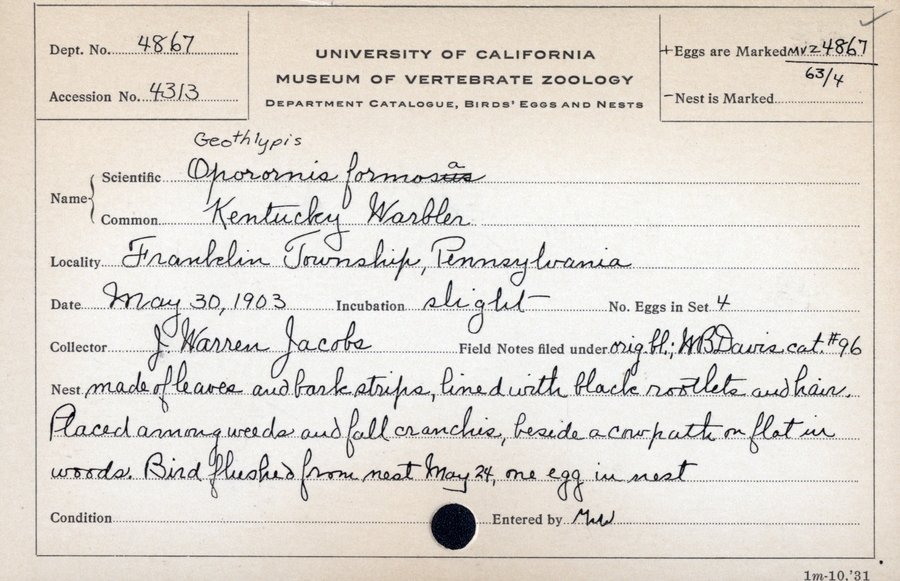 Dept. No. 4867
Accession No. 4313
UNIVERSITY OF CALIFORNIA
MUSEUM OF VERTEBRATE ZOOLOGY
DEPARTMENT CATALOGUE, BIRDS' EGGS AND NESTS
+Eggs are Marked MVZ 4867
63/4
-Nest is Marked
Geothlypis
a
Name Scientific Oporornis formosus
Common Kentucky Warbler
Locality Franklin Township, Pennsylvania
Date May 30, 1903 Incubation slight No. Eggs in Set 4
Collector J. Warren Jacobs Field Notes filed under orig bl.; WBDavis cat. #96
Nest made of leaves and bark strips, lined with black rootlets and hair.
Placed among weeds and fall cranchis, beside a cow path on flat in
woods. Bird flushed from nest May 24, one egg in nest
Condition Entered by
1m-10,'31